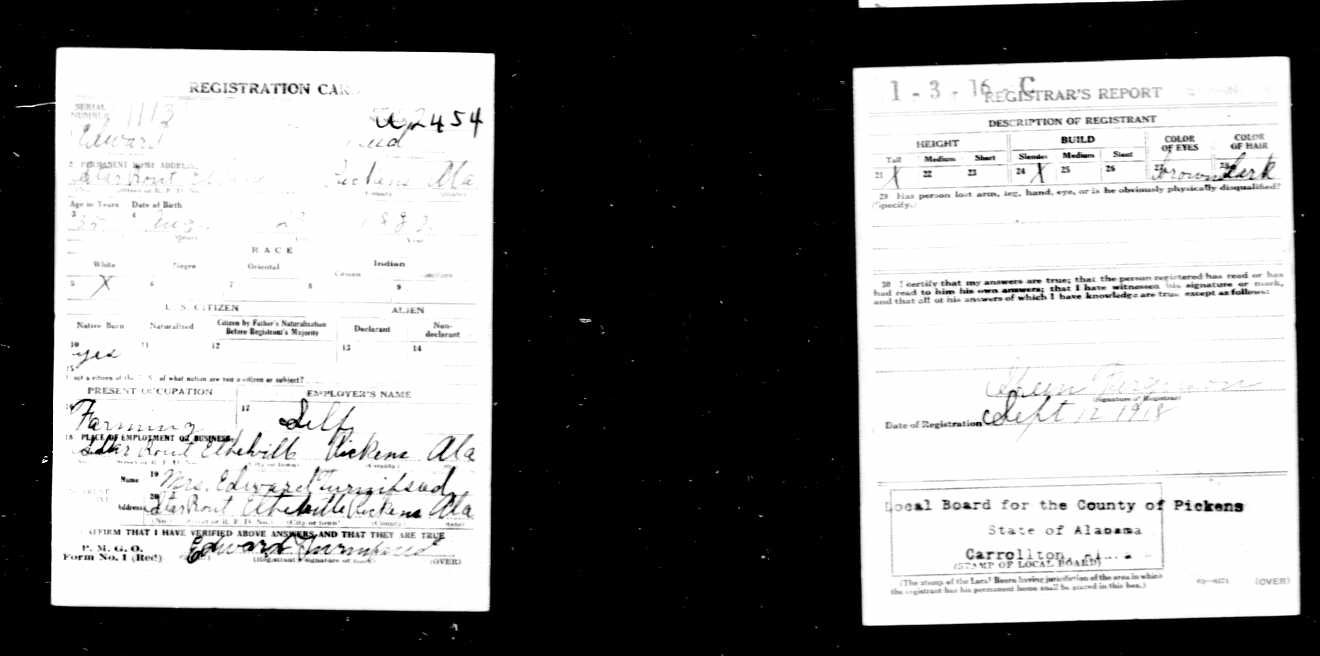 REGISTRATION CAR
SERIAL NUMBER 1113
2454
Edward
2 PERMANENT HOME ADDRESS
Star Rout Pickens Ala
Age in Years Date of Birth
3 35 4 Aug
RACE
White Negro Oriental Indian
Citizen
5 X 6 7 8 9
U. S. CITIZEN ALIEN
Native Born Naturalized Citizen by Father's Naturalization Before Registrant's Majority Declarant Non-declarant
10 yes 11 12 13 14
15
If not a citizen of the U. S. of what nation are you a citizen or subject?
PRESENT OCCUPATION EMPLOYER'S NAME
16 Farming 17 Self
18 PLACE OF EMPLOYMENT OR BUSINESS
Star Rout Ethelville Pickens Ala
Name 19 Mrs. Edward Turnipseed
Address 20 Star Rout Ethelville Pickens Ala
(No.) (Street or R. F. D. No.) (City or town) (County) (State)
AFFIRM THAT I HAVE VERIFIED ABOVE ANSWERS AND THAT THEY ARE TRUE
P. M. G. O.
Form No. 1 (Red) Edward Turnipseed
(Registrant's signature or mark) (OVER)
1 - 3 - 16 - C
REGISTRAR'S REPORT
DESCRIPTION OF REGISTRANT
HEIGHT BUILD COLOR OF EYES COLOR OF HAIR
Tall Medium Short Slender Medium Stout
21 X 22 23 24 X 25 26 27 brown 28 dark
29 Has person lost arm, leg, hand, eye, or is he obviously physically disqualified?
(Specify.)
30 I certify that my answers are true; that the person registered has read or has
had read to him his own answers; that I have witnessed his signature or mark,
and that all of his answers of which I have knowledge are true, except as follows:
Ferguson
(Signature of Registrar)
Date of Registration Sept 12 1918
Local Board for the County of Pickens
State of Alabama
Carrollton, Ala.
(STAMP OF LOCAL BOARD)
(The stamp of the Local Board having jurisdiction of the area in which
the registrant has his permanent home shall be placed in this box.)
(OVER)